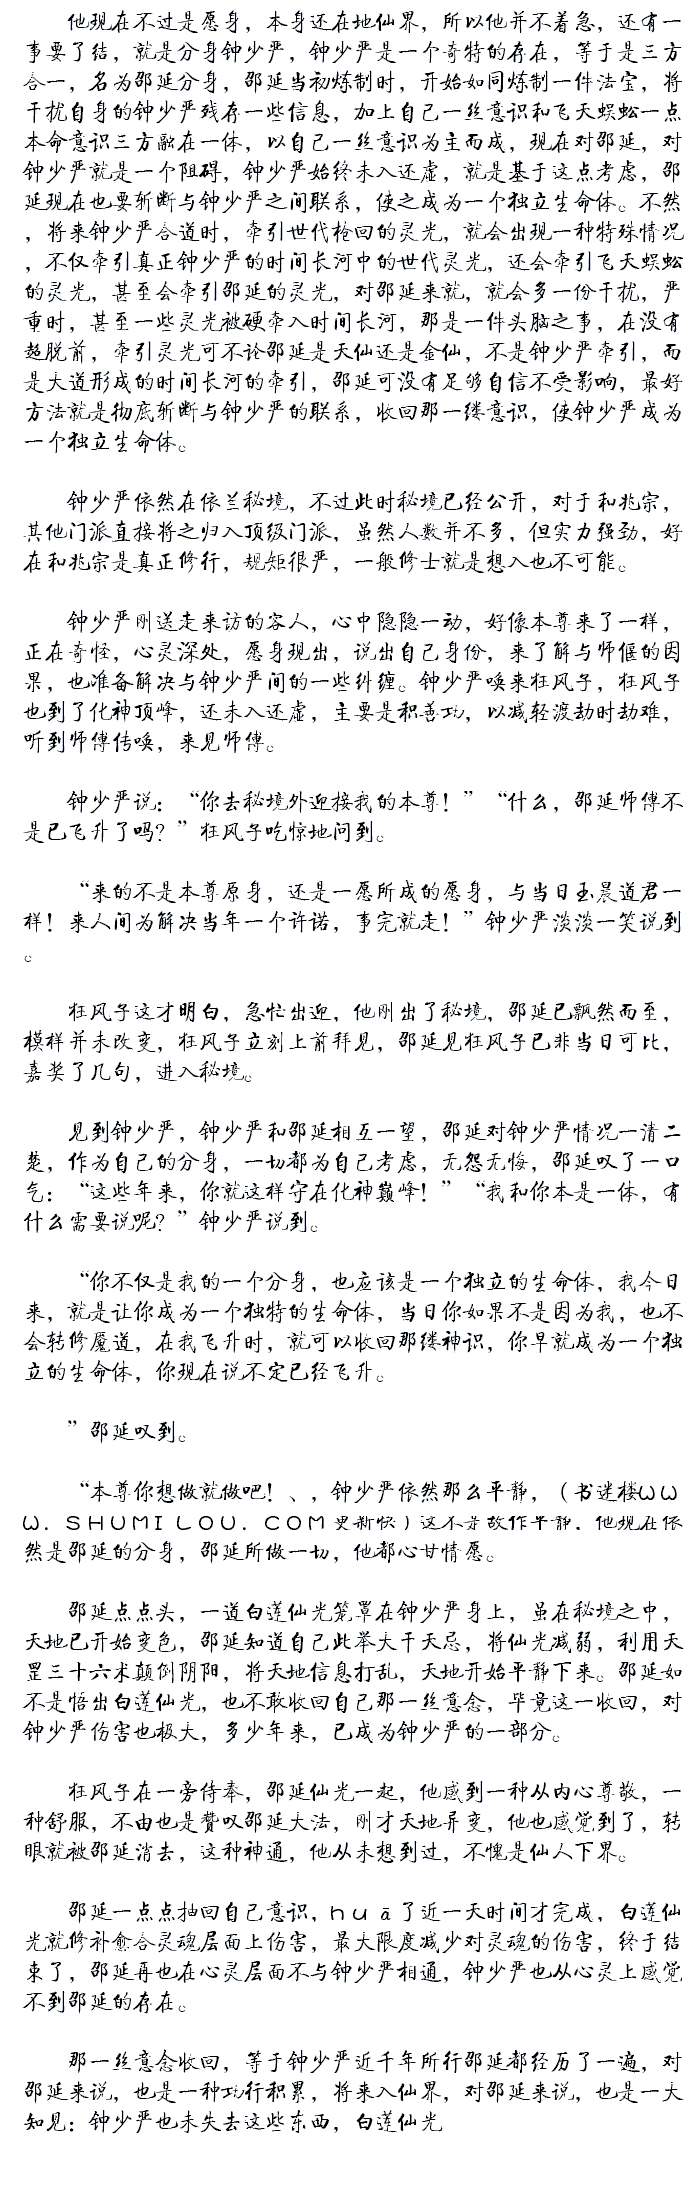 他现在不过是愿身，本身还在地仙界，所以他并不着急，还有一
事要了结，就是分身钟少严，钟少严是一个奇特的存在，等于是三方
合一，名为邵延分身，邵延当初炼制时，开始如同炼制一件法宝，将
干扰自身的钟少严残存一些信息，加上自己一丝意识和飞天蜈蚣一点
本命意识三方融在一体，以自己一丝意识为主而成，现在对邵延，对
钟少严就是一个阻碍，钟少严始终未入还虚，就是基于这点考虑，邵
延现在也要斩断与钟少严之间联系，使之成为一个独立生命体。不然
，将来钟少严合道时，牵引世代轮回的灵光，就会出现一种特殊情况
，不仅牵引真正钟少严的时间长河中的世代灵光，还会牵引飞天蜈蚣
的灵光，甚至会牵引邵延的灵光，对邵延来就，就会多一份干扰，严
重时，甚至一些灵光被硬牵入时间长河，那是一件头脑之事，在没有
超脱前，牵引灵光可不论邵延是天仙还是金仙，不是钟少严牵引，而
是大道形成的时间长河的牵引，邵延可没有足够自信不受影响，最好
方法就是彻底斩断与钟少严的联系，收回那一缕意识，使钟少严成为
一个独立生命体。
钟少严依然在依兰秘境，不过此时秘境已经公开，对于和兆宗，
其他门派直接将之归入顶级门派，虽然人数并不多，但实力强劲，好
在和兆宗是真正修行，规矩很严，一般修士就是想入也不可能。
钟少严刚送走来访的客人，心中隐隐一动，好像本尊来了一样，
正在奇怪，心灵深处，愿身现出，说出自己身份，来了解与师偃的因
果，也准备解决与钟少严间的一些纠缠。钟少严唤来狂风子，狂风子
也到了化神顶峰，还未入还虚，主要是积善功，以减轻渡劫时劫难，
听到师傅传唤，来见师傅。
钟少严说：“你去秘境外迎接我的本尊！”“什么，邵延师傅不
是已飞升了吗？”狂风子吃惊地问到。
“来的不是本尊原身，还是一愿所成的愿身，与当日玉晨道君一
样！来人间为解决当年一个许诺，事完就走！”钟少严淡淡一笑说到
。
狂风子这才明白，急忙出迎，他刚出了秘境，邵延已飘然而至，
模样并未改变，狂风子立刻上前拜见，邵延见狂风子已非当日可比，
嘉奖了几句，进入秘境。
见到钟少严，钟少严和邵延相互一望，邵延对钟少严情况一清二
楚，作为自己的分身，一切都为自己考虑，无怨无悔，邵延叹了一口
气：“这些年来，你就这样守在化神巅峰！”“我和你本是一体，有
什么需要说呢？”钟少严说到。
“你不仅是我的一个分身，也应该是一个独立的生命体，我今日
来，就是让你成为一个独特的生命体，当日你如果不是因为我，也不
会转修魔道，在我飞升时，就可以收回那缕神识，你早就成为一个独
立的生命体，你现在说不定已经飞升。
”邵延叹到。
“本尊你想做就做吧！、，钟少严依然那么平静，（书迷楼ＷＷ
Ｗ．ＳＨＵＭＩＬＯＵ．ＣＯＭ更新快）这不是故作平静．他现在依
然是邵延的分身，邵延所做一切，他都心甘情愿。
邵延点点头，一道白莲仙光笼罩在钟少严身上，虽在秘境之中，
天地已开始变色，邵延知道自己此举大干天忌，将仙光减弱，利用天
罡三十六术颠倒阴阳，将天地信息打乱，天地开始平静下来。邵延如
不是悟出白莲仙光，也不敢收回自己那一丝意念，毕竟这一收回，对
钟少严伤害也极大，多少年来，已成为钟少严的一部分。
狂风子在一旁侍奉，邵延仙光一起，他感到一种从内心尊敬，一
种舒服，不由也是赞叹邵延大法，刚才天地异变，他也感觉到了，转
眼就被邵延消去，这种神通，他从未想到过，不愧是仙人下界。
邵延一点点抽回自己意识，ｈｕā了近一天时间才完成，白莲仙
光就修补愈合灵魂层面上伤害，最大限度减少对灵魂的伤害，终于结
束了，邵延再也在心灵层面不与钟少严相通，钟少严也从心灵上感觉
不到邵延的存在。
那一丝意念收回，等于钟少严近千年所行邵延都经历了一遍，对
邵延来说，也是一种功行积累，将来入仙界，对邵延来说，也是一大
知见：钟少严也未失去这些东西，白莲仙光